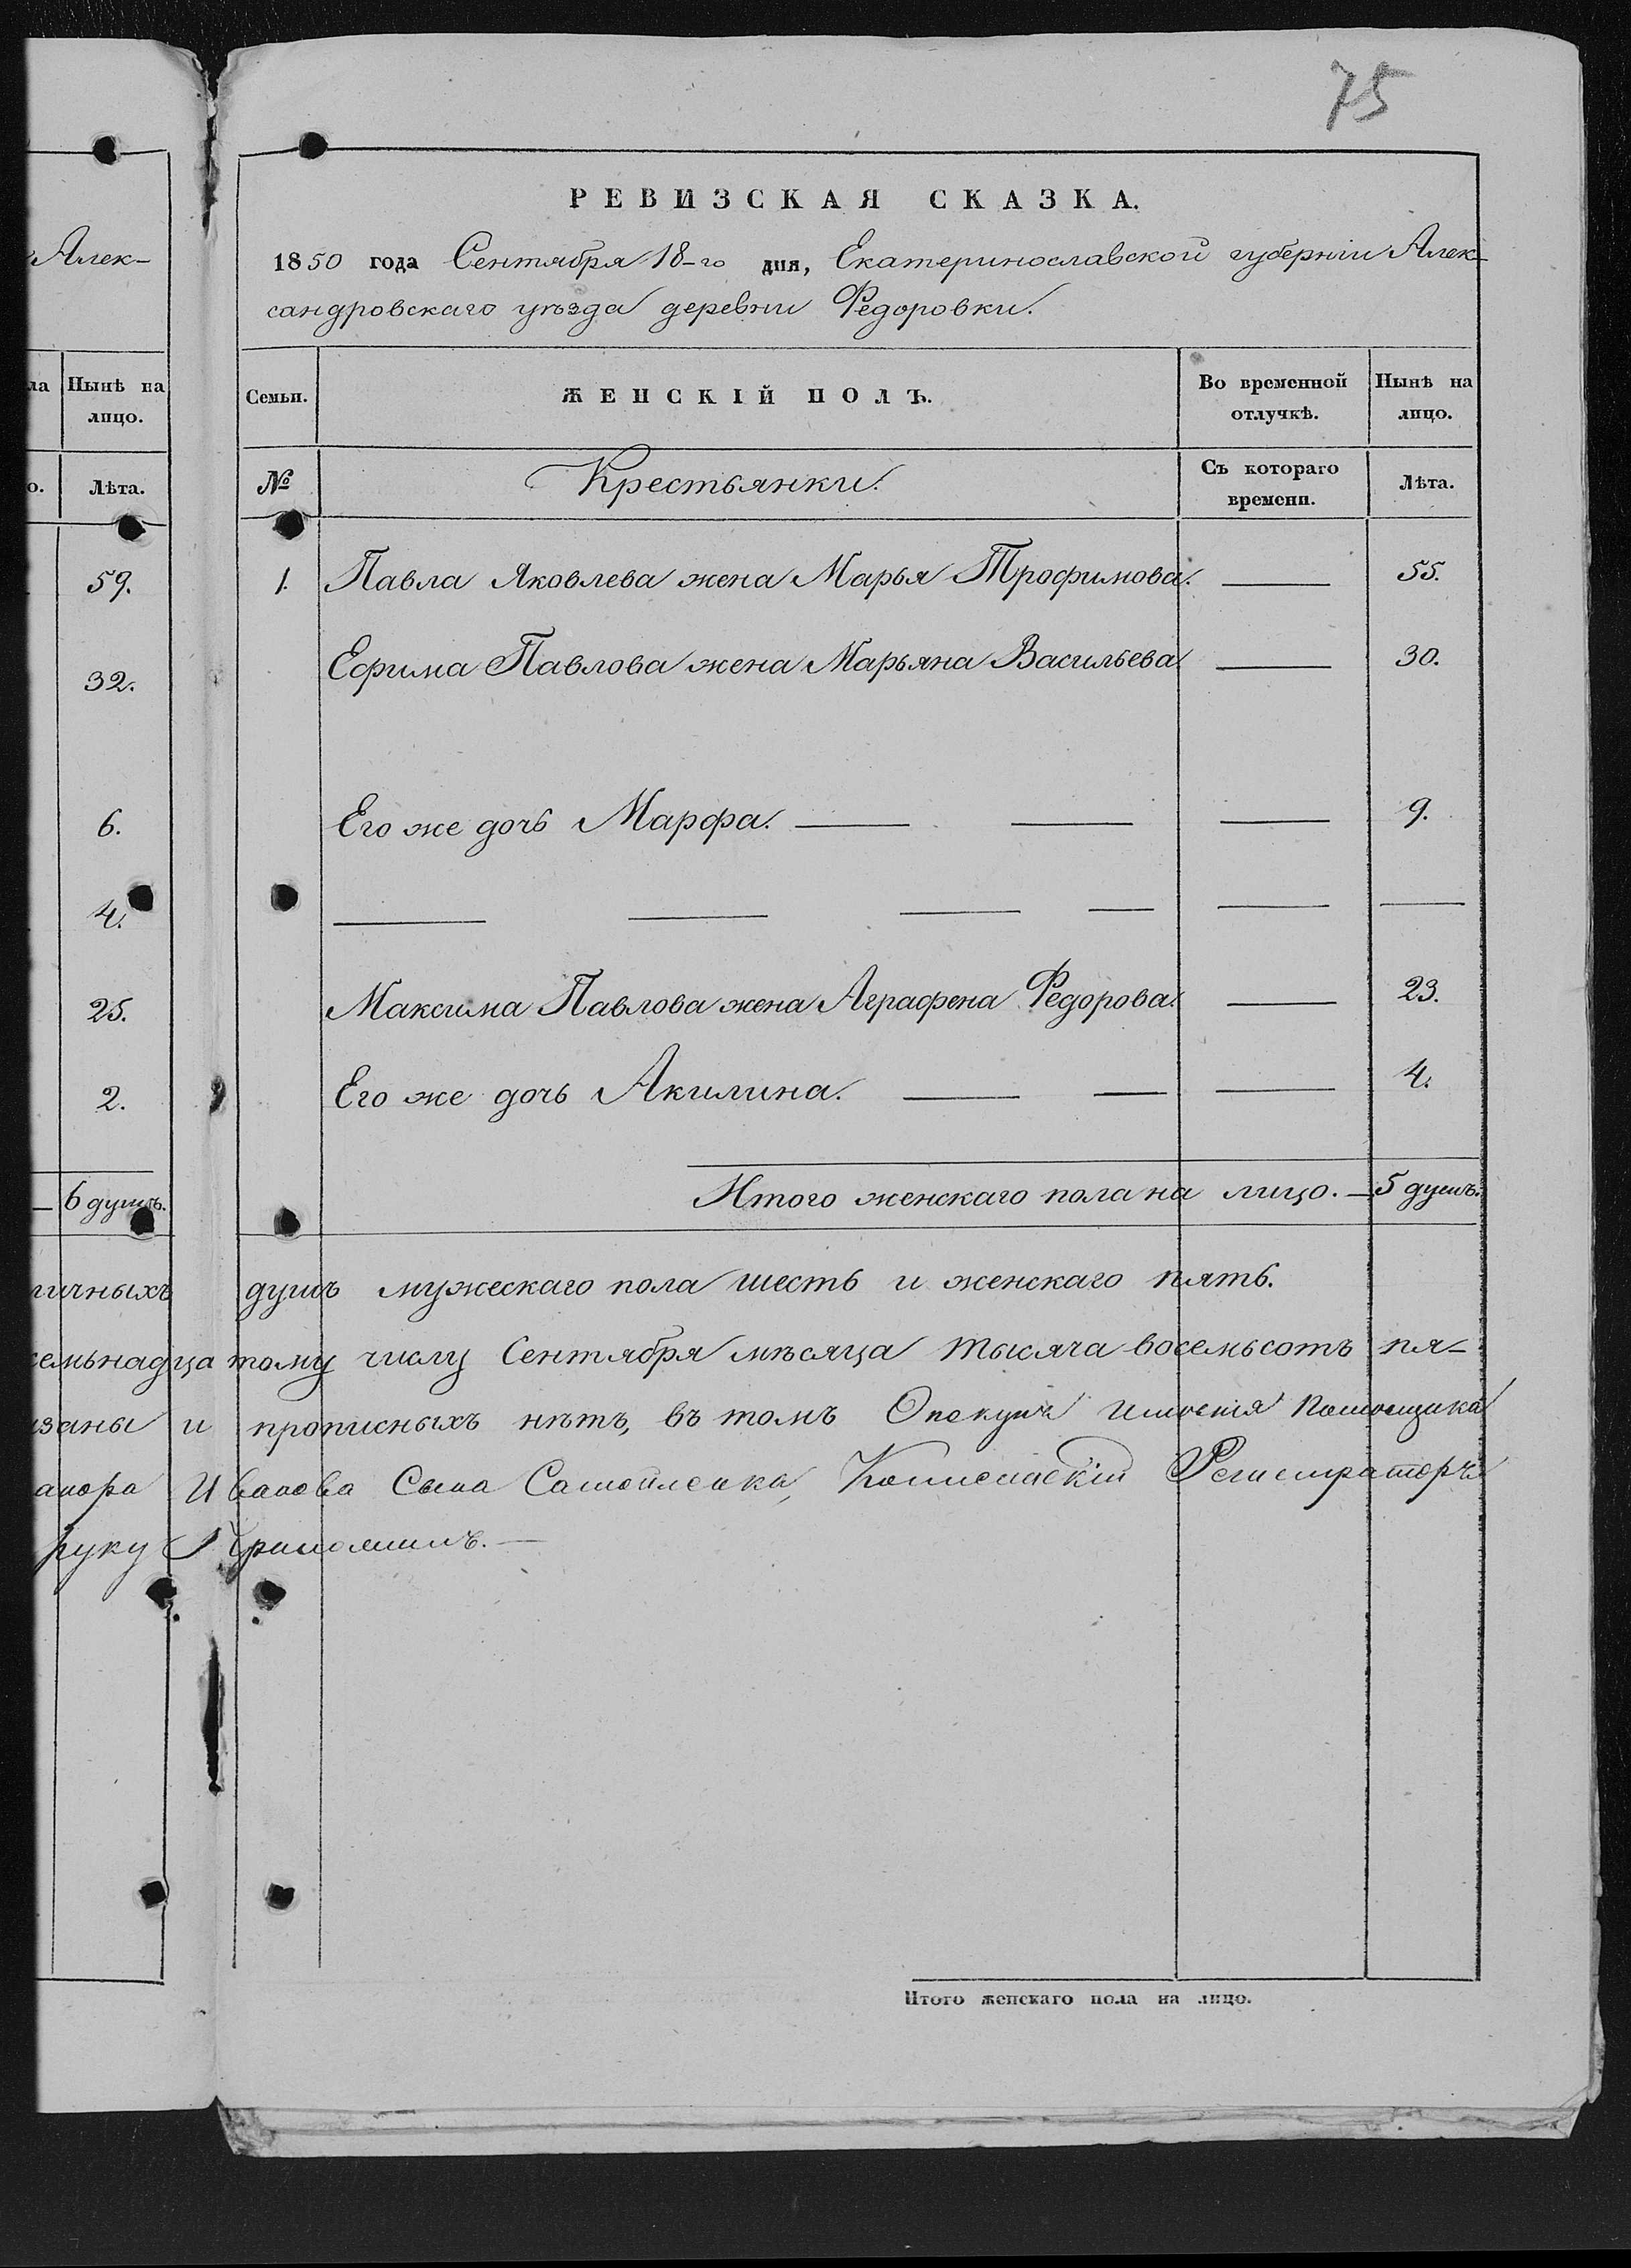 75
РЕВИЗСКАЯ СКАЗКА.
1850 года Сентября 18-го дня, Екатеринославской губерніи Алек-
сандровскаго уѣзда деревни Федоровки.
Алек-
ла Нынѣ на
лицо.
о. Лѣта.
59.
32.
6.
4.
25.
2.
6 душъ.
Семьи. ЖЕНСКІЙ ПОЛЪ. Во временной Нынѣ на
отлучкѣ. лицо.
№ Крестьянки. Съ котораго Лѣта.
времени.
1. Павла Яковлева жена Марья Трофимова. — 55.
Ефима Павлова жена Марьяна Васильева. — 30.
Его же дочь Марфа. — — — 9.
— — — — — —
Максима Павлова жена Аграфена Федорова. — 23.
Его же дочь Акилина. — — — 4.
Итого женскаго пола на лицо. — 5 душъ.
личныхъ душъ мужескаго пола шесть и женскаго пять.
семьнадцатому числу Сентября мѣсяца тысяча восемьсотъ пя-
заны и прописныхъ нѣтъ, въ томъ Опекунъ имѣнія Помѣщика
Иванова Сына Самойленка, Коллежскій Регистраторъ
руку приложилъ. —
Итого женскаго пола на лицо.